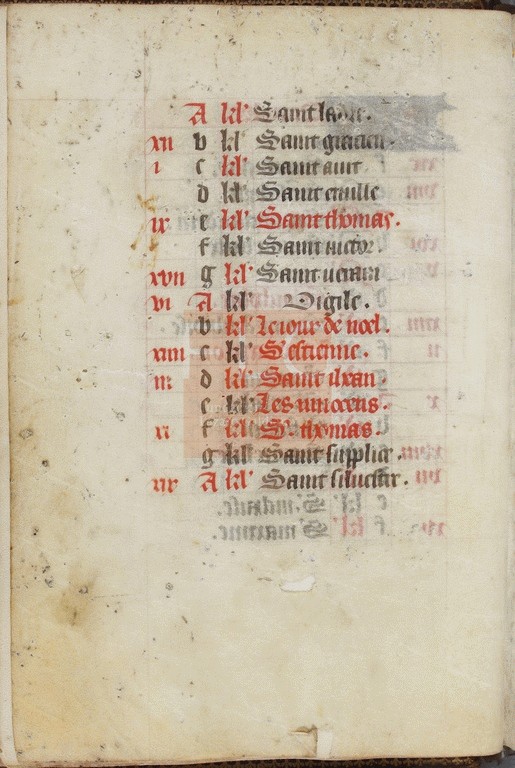 A kl' Saint ladre.
xii b kl Saint gracien.
i c kl' Saint auit
d kl' Saint
ix e kl' Saint thomas.
f kl' Saint uictor
xvii g kl' Saint
vi A kl' Vigile.
b kl' Le iour de noel.
xiiii c kl' S' estienne.
iii d kl' Saint iehan.
e kl' Les innocens.
xi f kl' S' thomas.
g kl' Saint supplice.
xix A kl' Saint siluestre.